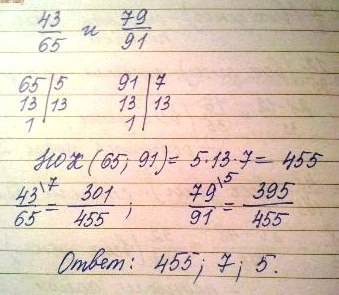 43/65 и 79/91
65|5 91|7
13|13 13|13
1| 1|
НОК (65; 91) = 5·13·7 = 455
43\7/65 = 301/455 ; 79\5/91 = 395/455
Ответ: 455; 7; 5.